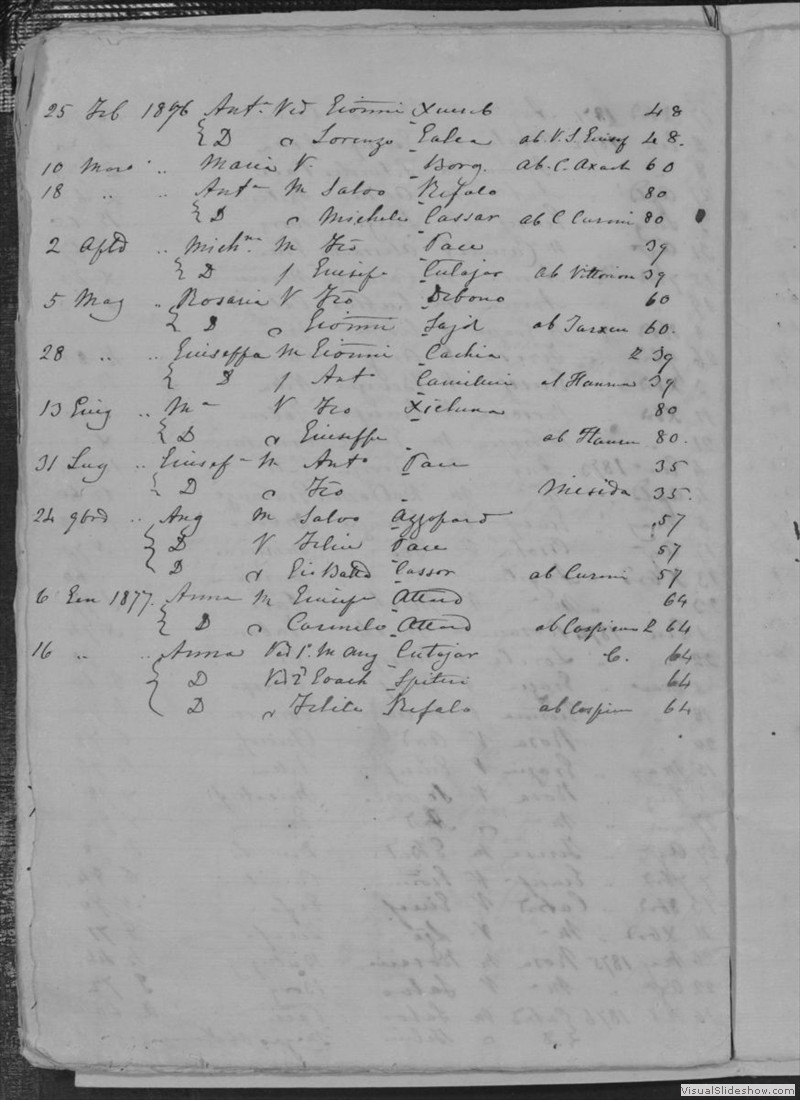 25 Feb 1876 Ant.ª Ved Giōnni Xuereb 48
D a Lorenzo Galea ab. V. S. Giusef 48.
10 Marº .. Maria V. Borg. Ab. C. Axach 60
18 .. .. Ant.ª M Salvo Refalo 80
D a Michele Cassar ab C Curmi 80
2 .. Mich.na M Frō Pace 39
D f Giusepe Cutajar ab Vittoriosa 39
5 Mag .. Rosaria V Frō Debono 60
D a Giōnni Sajd ab Tarxien 60.
28 .. .. Giuseffa M Giōnni Cachia 39
D f Antº Camilleri ab Hamrun 39
13 Giug .. Mª V Frō Xicluna 80
D a Giuseppe ab Hamrun 80.
31 Lug .. Giusef M Antº Pace 35
D a Frō Msida 35.
24 9bre .. Ang M Salvo Azzopard 57
D V Felice Pace 57
D a Gio Batta Cassar ab Curmi 57
6 Gen 1877. Anna M Giusepe Attard 64
D a Carmelo Attard ab Cospicua 64
16 .. .. Anna Ved 1º M Ang Cutajar C. 64
D Ved 2º Gioach Spiteri 64
D a Felice Refalo ab Cospicua 64
VisualSlideshow.com